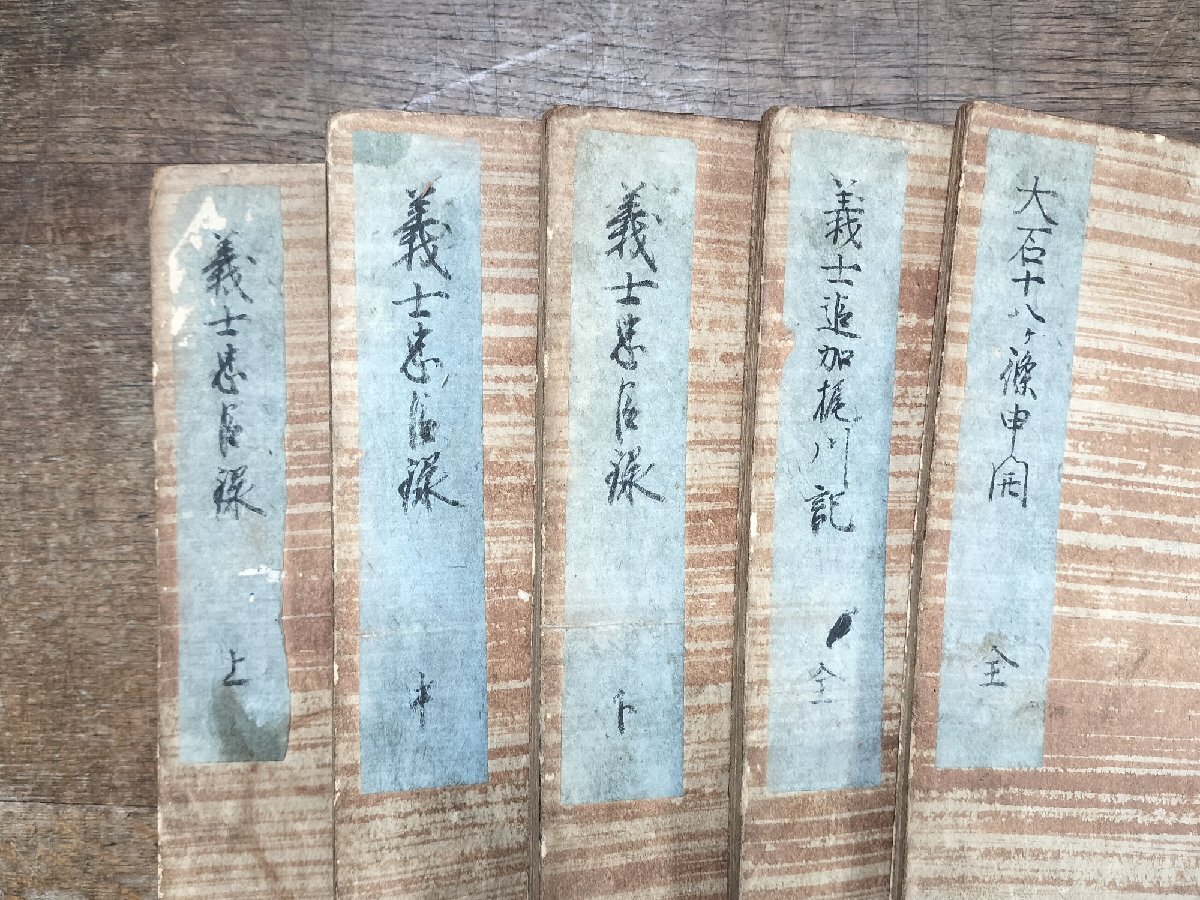 義士忠臣録 上
義士忠臣録 中
義士忠臣録 下
義士追加梶川記 全
大石十八ヶ條申開 全